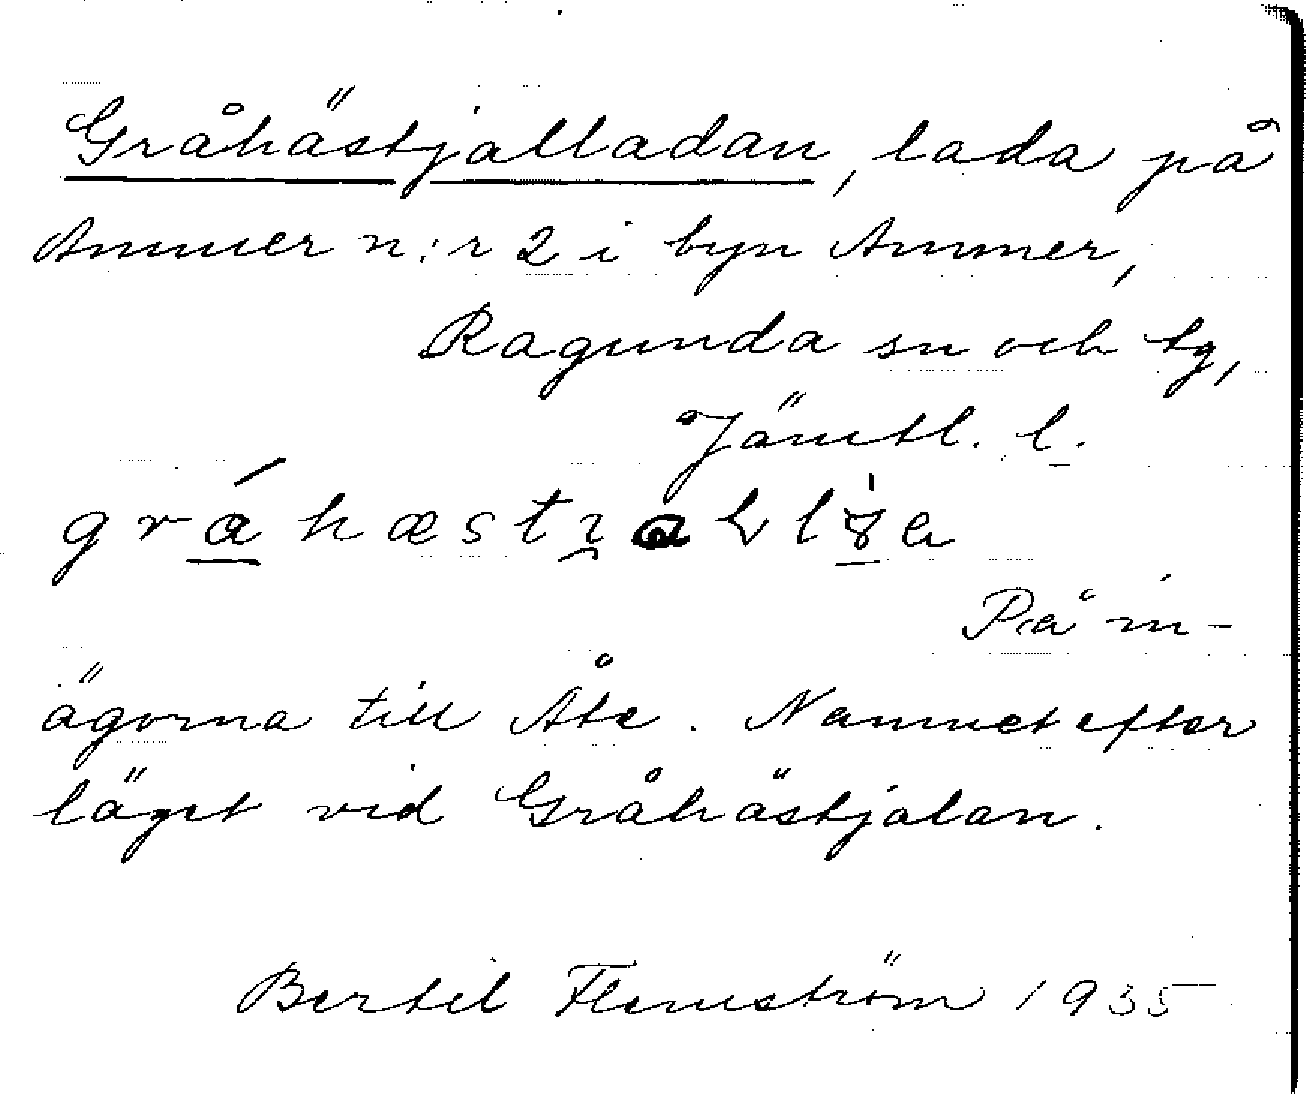 Gråhästjalladan, lada på
Ammer n:r 2 i byn Ammer,
Ragunda sn och tg,
Jämtl. l.
På in-
ägorna till Åte. Namnet efter
läget vid Gråhästjalan.
Bertil Flemström 1935